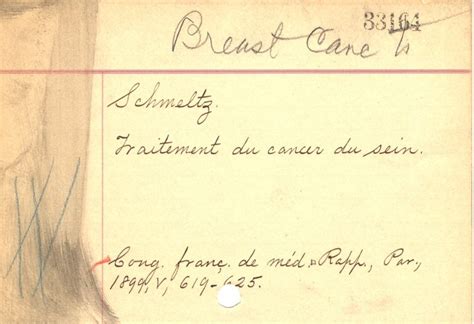 33164
Breast Canc
Schmeltz.
Traitement du cancer du sein.
Cong. franç. de méd. Rapp., Par.,
1899, V, 619-625.